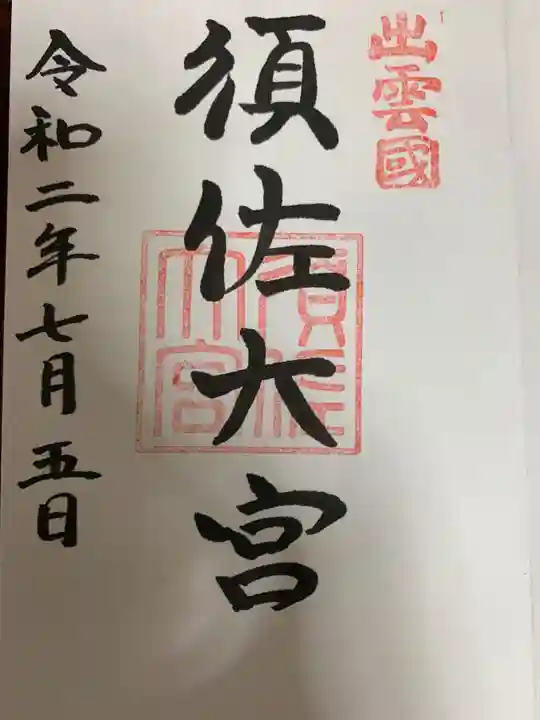 出雲國
須佐大宮
須佐
大宮
令和二年七月五日